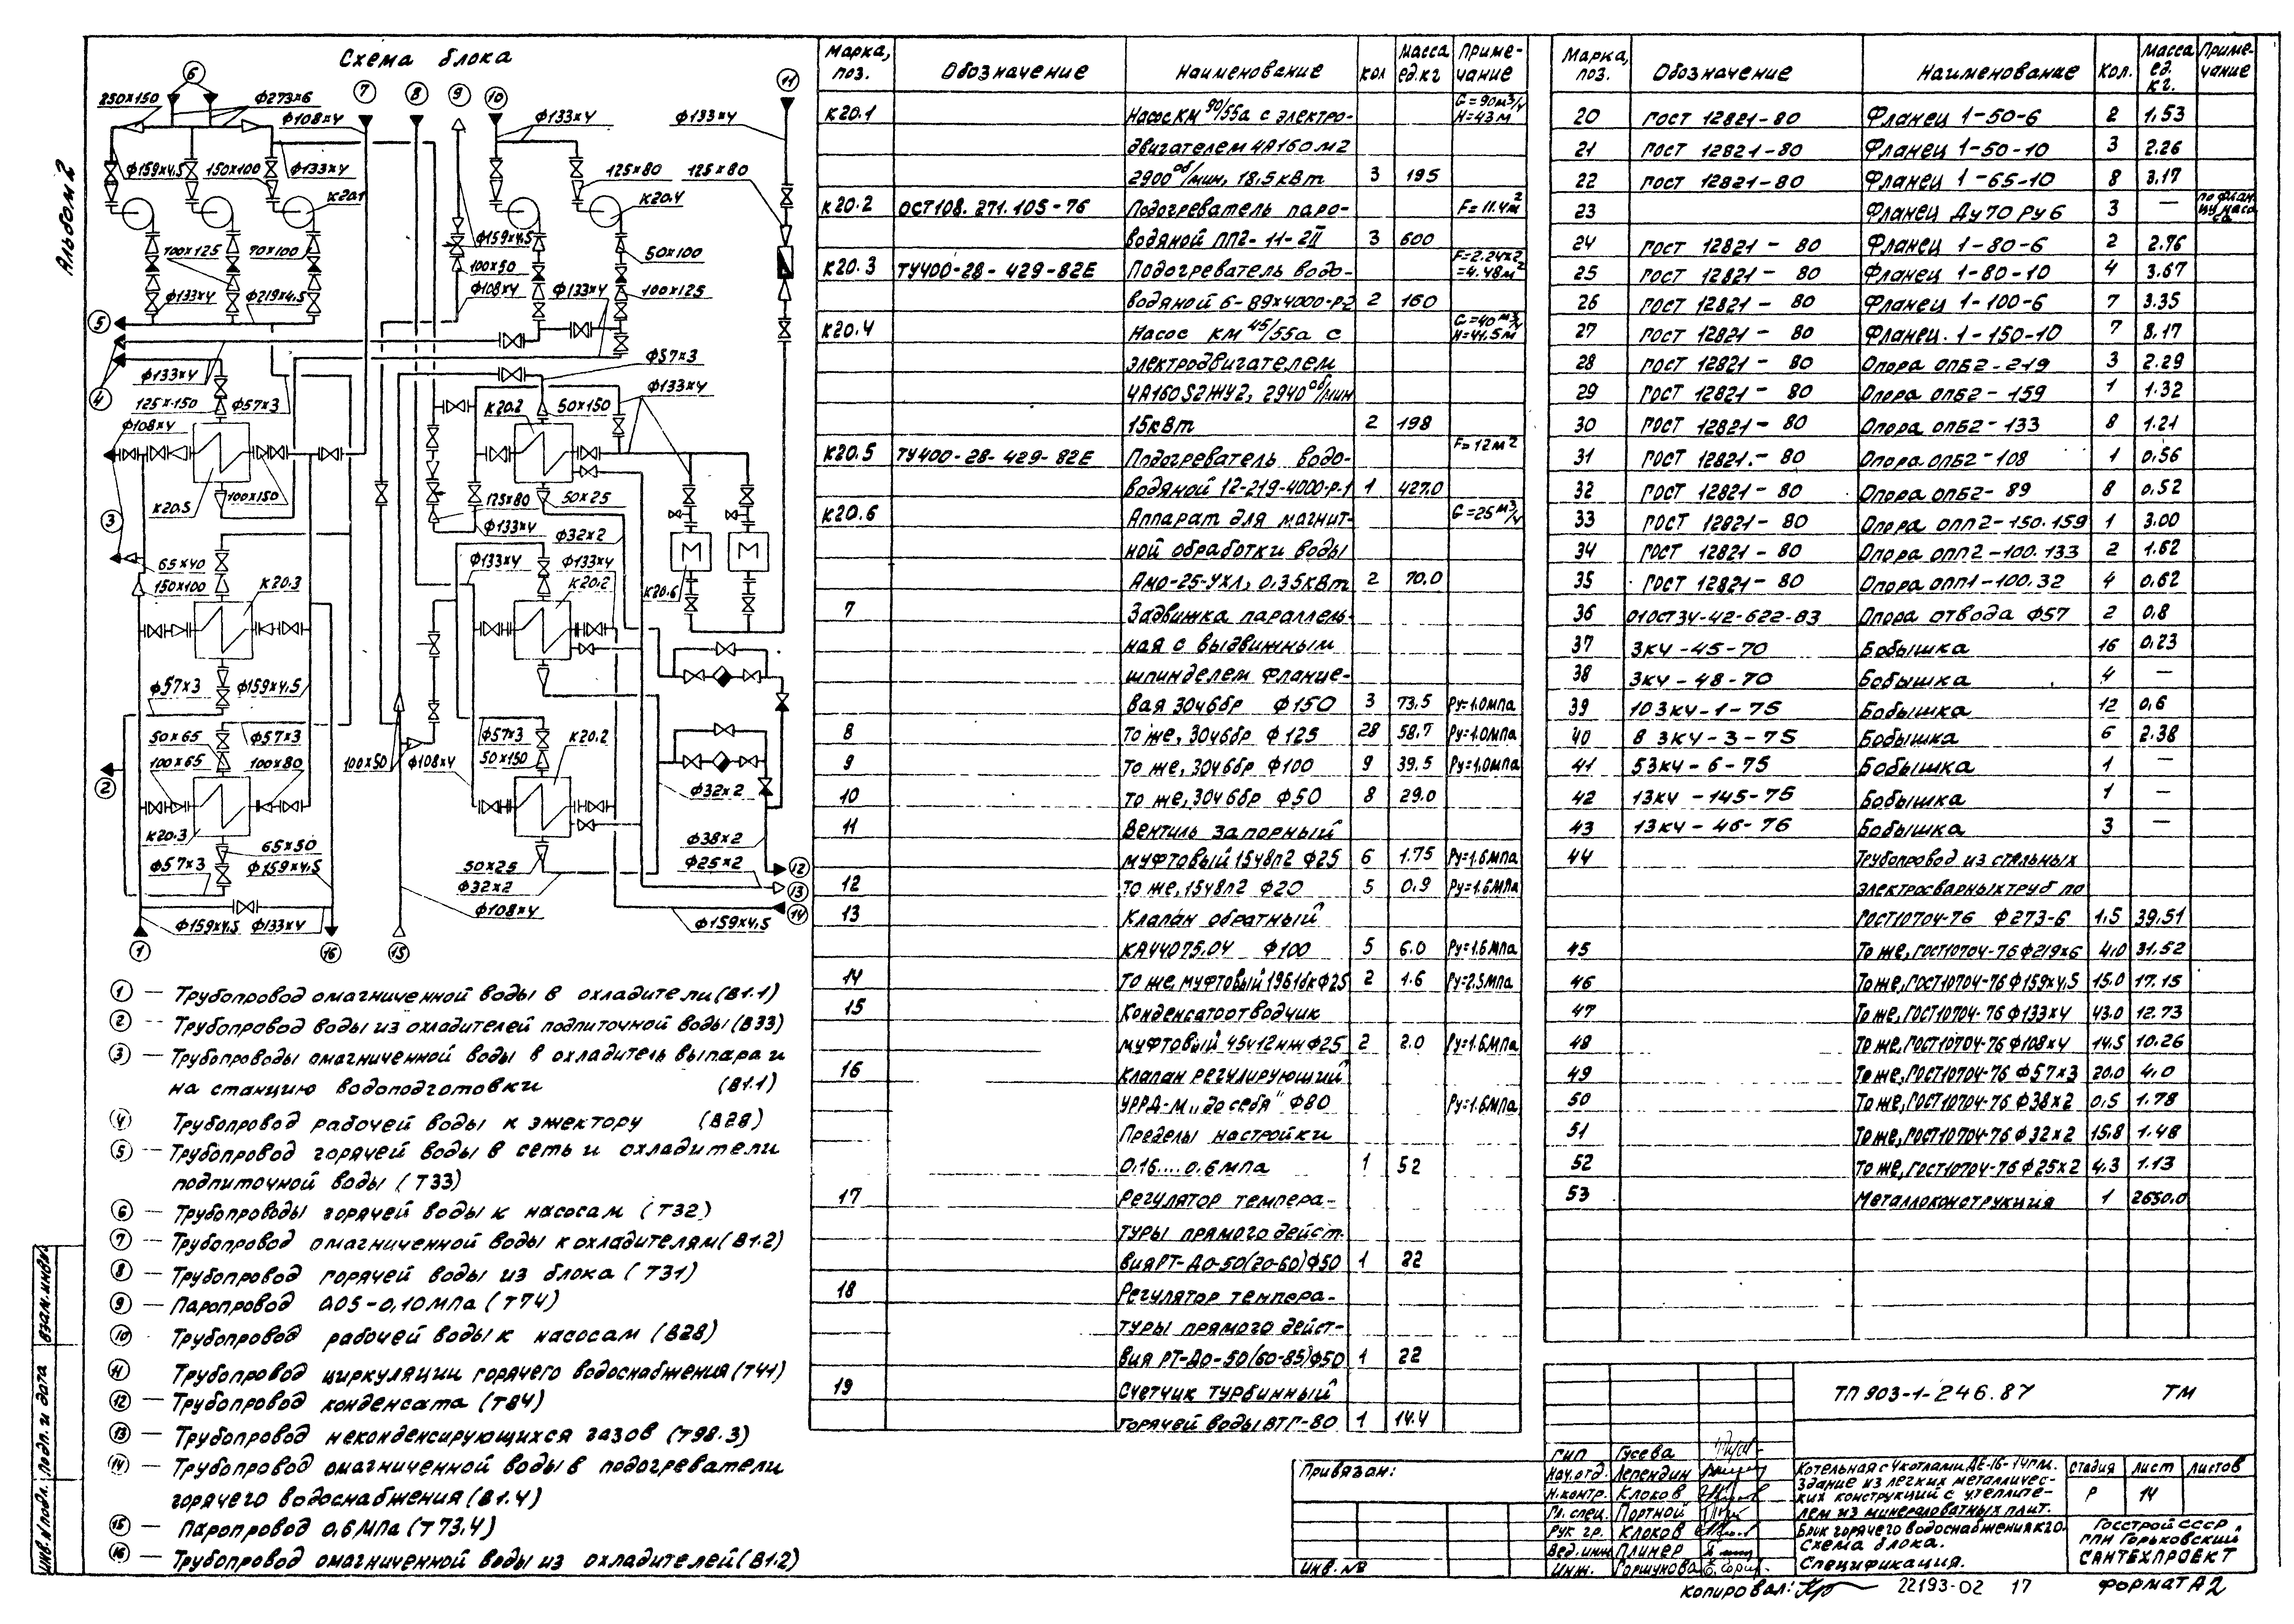 Альбом 2
Схема блока
6
7
8
9
10
11
250×150
Ф273×6
Ф108×4
Ф133×4
Ф133×4
Ф159×4,5
150×100
Ф133×4
125×80
125×80
К20.1
К20.4
100×125
70×100
Ф159×4,5
100×50
50×100
Ф133×4
Ф219×4,5
Ф108×4
Ф133×4
100×125
5
Ф133×4
Ф57×3
4
125×150
Ф57×3
К20.2
50×150
Ф133×4
Ф108×4
К20.5
100×150
125×80
50×25
3
Ф133×4
Ф32×2
М
М
65×40
150×100
К20.3
Ф133×4
Ф133×4
К20.2
К20.6
Ф57×3
Ф159×4,5
50×65
Ф57×3
Ф57×3
К20.2
100×65
100×80
100×50
Ф108×4
50×150
2
Ф32×2
К20.3
65×50
Ф38×2
Ф57×3
Ф159×4,5
50×25
Ф25×2
12
Ф32×2
13
Ф159×4,5
Ф133×4
Ф108×4
Ф159×4,5
14
1
16
15
1 — Трубопровод омагниченной воды в охладители (В1.1)
2 — Трубопровод воды из охладителей подпиточной воды (В33)
3 — Трубопроводы омагниченной воды в охладитель выпара и
на станцию водоподготовки (В1.1)
4 Трубопровод рабочей воды к эжектору (В28)
5 — Трубопровод горячей воды в сеть и охладители
подпиточной воды (Т33)
6 — Трубопроводы горячей воды к насосам (Т32)
7 — Трубопровод омагниченной воды к охладителям (В1.2)
8 — Трубопровод горячей воды из блока (Т31)
9 — Паропровод 0,05-0,10МПа (Т74)
10 — Трубопровод рабочей воды к насосам (В28)
11 Трубопровод циркуляции горячего водоснабжения (Т41)
12 — Трубопровод конденсата (Т84)
13 — Трубопровод неконденсирующихся газов (Т98.3)
14 — Трубопровод омагниченной воды в подогреватели
горячего водоснабжения (В1.4)
15 — Паропровод 0,6МПа (Т73.4)
16 — Трубопровод омагниченной воды из охладителей (В1.2)
Марка, поз. Обозначение Наименование Кол Масса ед.кг Примечание
К20.1 Насос КМ 90/55а с электро- G=90м³/ч Н=43м
двигателем 4А160М2
2900 об/мин, 18,5кВт 3 195
К20.2 ОСТ108.271.105-76 Подогреватель паро- F=11.4м²
водяной ПП2-11-2II 3 600
К20.3 ТУ400-28-429-82Е Подогреватель водо- F=2.24×2 =4.48м²
водяной 6-89×4000-Р-2 2 160
К20.4 Насос КМ 45/55а с G=40м³/ч Н=41,5м
электродвигателем
4А160S2ЖУ2, 2940об/мин
15кВт 2 198
К20.5 ТУ400-28-429-82Е Подогреватель водо- F=12м²
водяной 12-219-4000-Р-1 1 427.0
К20.6 Аппарат для магнит- G=25м³/ч
ной обработки воды
АМО-25-УХЛ, 0.35кВт 2 70.0
7 Задвижка параллель-
ная с выдвижным
шпинделем фланце-
вая 30ч6бр Ф150 3 73,5 Ру=1.0МПа
8 То же, 30ч6бр Ф125 28 58.7 Ру=1.0МПа
9 То же, 30ч6бр Ф100 9 39.5 Ру=1.0МПа
10 То же, 30ч6бр Ф50 8 29.0
11 Вентиль запорный
муфтовый 15ч8п2 Ф25 6 1.75 Ру=1.6МПа
12 То же, 15ч8п2 Ф20 5 0.9 Ру=1.6МПа
13 Клапан обратный
КА44075.04 Ф100 5 6.0 Ру=1.6МПа
14 То же муфтовый 19Б1бк Ф25 2 1.6 Ру=2.5МПа
15 Конденсатоотводчик
муфтовый 45ч12нж Ф25 2 2.0 Ру=1.6МПа
16 Клапан регулирующий
УРРД-М „до себя" Ф80 Ру=1.6МПа
Пределы настройки
0.16....0.6МПа 1 52
17 Регулятор темпера-
туры прямого дейст-
вия РТ-ДО-50(20-60)Ф50 1 22
18 Регулятор темпера-
туры прямого дейст-
вия РТ-ДО-50(60-85)Ф50 1 22
19 Счетчик турбинный
горячей воды ВТГ-80 1 14.4
Марка, поз. Обозначение Наименование Кол. Масса ед. кг. Примечание
20 ГОСТ 12821-80 Фланец 1-50-6 2 1,53
21 ГОСТ 12821-80 Фланец 1-50-10 3 2.26
22 ГОСТ 12821-80 Фланец 1-65-10 8 3.17
23 Фланец Ду70 Ру6 3 — по фланцу насоса
24 ГОСТ 12821-80 Фланец 1-80-6 2 2.76
25 ГОСТ 12821-80 Фланец 1-80-10 4 3.67
26 ГОСТ 12821-80 Фланец 1-100-6 7 3.35
27 ГОСТ 12821-80 Фланец. 1-150-10 7 8.17
28 ГОСТ 12821-80 Опора ОПБ2-219 3 2.29
29 ГОСТ 12821-80 Опора ОПБ2-159 1 1.32
30 ГОСТ 12821-80 Опора ОПБ2-133 8 1.21
31 ГОСТ 12821.-80 Опора ОПБ2-108 1 0.56
32 ГОСТ 12821-80 Опора ОПБ2-89 8 0.52
33 ГОСТ 12821-80 Опора ОПП2-150.159 1 3.00
34 ГОСТ 12821-80 Опора ОПП2-100.133 2 1.62
35 ГОСТ 12821-80 Опора ОПП1-100.32 4 0.62
36 01ОСТ34-42-622-83 Опора отвода Ф57 2 0.8
37 3К4-45-70 Бобышка 16 0,23
38 3К4-48-70 Бобышка 4 —
39 10 3К4-1-75 Бобышка 12 0,6
40 8 3К4-3-75 Бобышка 6 2.38
41 53К4-6-75 Бобышка 1 —
42 13К4-145-75 Бобышка 1 —
43 13К4-46-76 Бобышка 3 —
44 Трубопровод из стальных
электросварных труб по
ГОСТ10704-76 Ф273-6 1,5 39,51
45 То же, ГОСТ10704-76 Ф219×6 4,0 31.52
46 То же, ГОСТ10704-76 Ф159×4,5 15.0 17.15
47 То же, ГОСТ10704-76 Ф133×4 43.0 12.73
48 То же, ГОСТ10704-76 Ф108×4 14.5 10.26
49 То же, ГОСТ10704-76 Ф57×3 20.0 4.0
50 То же, ГОСТ10704-76 Ф38×2 0,5 1.78
51 То же, ГОСТ10704-76 Ф32×2 15.8 1.48
52 То же, ГОСТ10704-76 Ф25×2 4,3 1.13
53 Металлоконструкция 1 2650.0
ТП 903-1-246.87 ТМ
Привязан:
Инв. №
ГИП Гусева
Нач.отд. Лепендин
Н.контр. Клоков
Гл.спец. Портной
Рук гр. Клоков
Вед.инж Плинер
Инж. Горшунова
Котельная с 4 котлами ДЕ-16-14ГМ.
Здание из легких металличес-
ких конструкций с утеплите-
лем из минераловатных плит.
Блок горячего водоснабжения К20.
Схема блока.
Спецификация.
Стадия Лист Листов
Р 14
Госстрой СССР
ГПИ Горьковский
САНТЕХПРОЕКТ
Копировал: 22193-02 17 Формат А2
Инв.№подл. Подп. и дата Взам.инв№